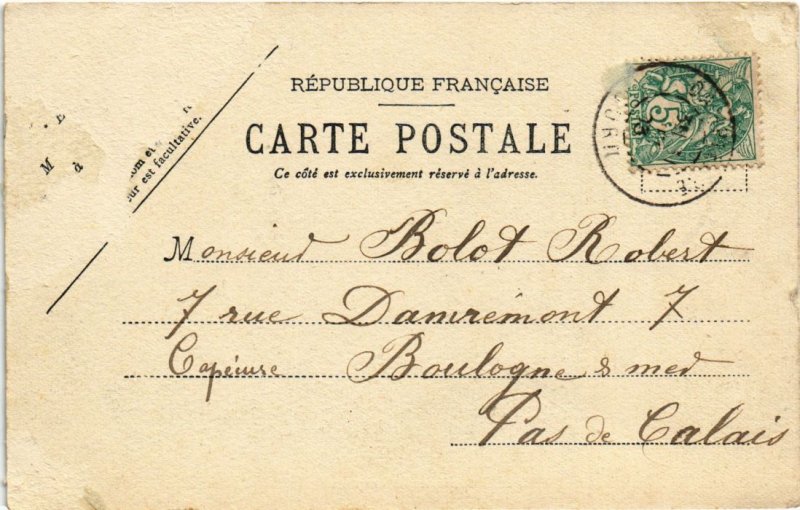 RÉPUBLIQUE FRANÇAISE
CARTE POSTALE
Ce côté est exclusivement réservé à l'adresse.
M
à
om et
ur est facultative.
Monsieur Bolot Robert
7 rue Damrémont 7
Boulogne s mer
Pas de Calais